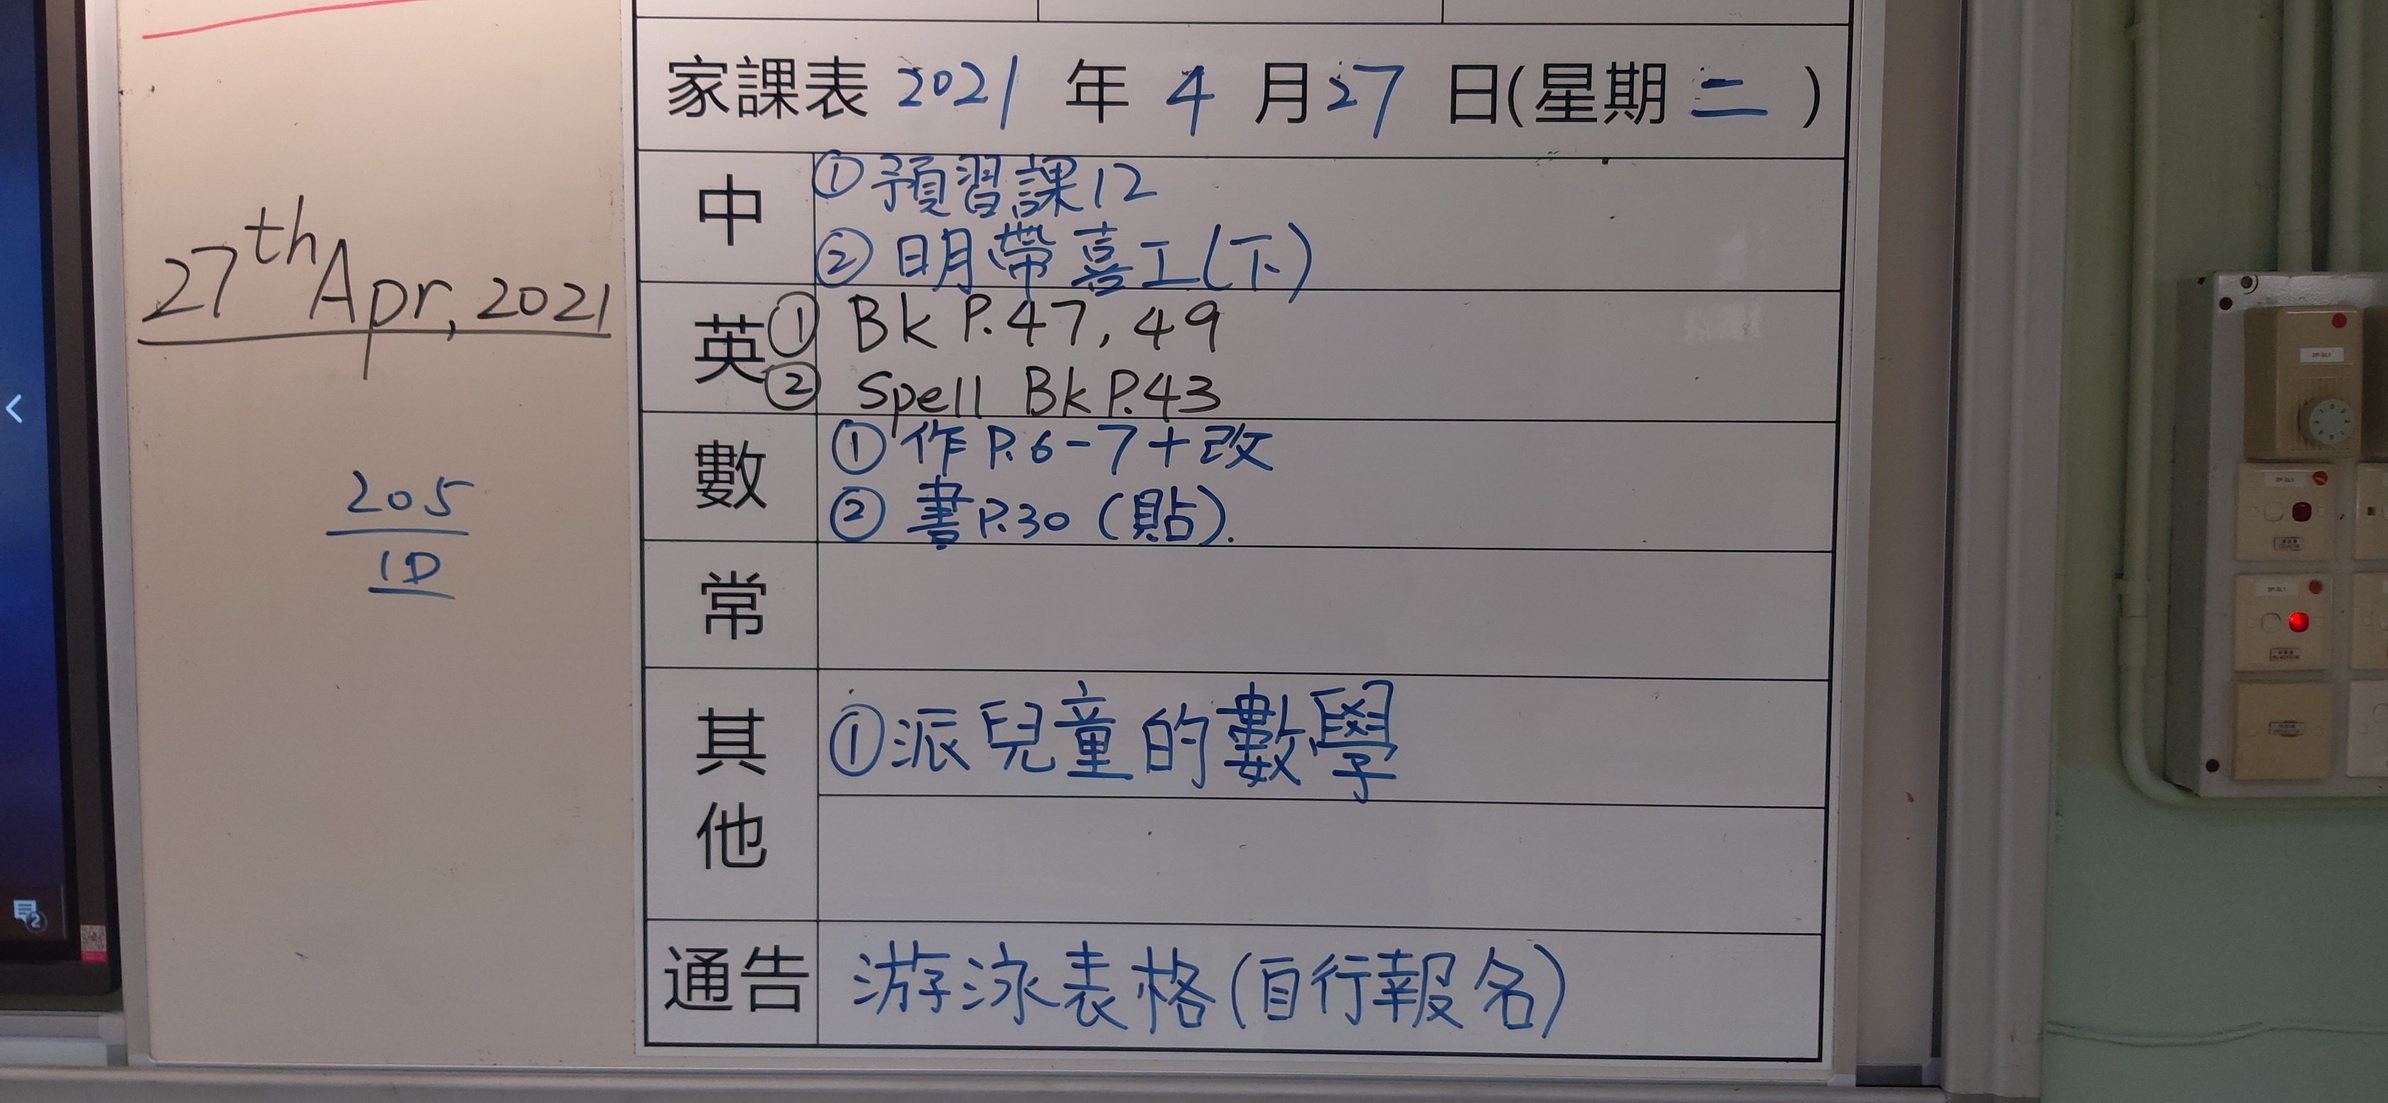 家課表 2021 年 4 月 27 日(星期 二 )
中
①預習課12
②明帶喜工(下)
英
① Bk P.47, 49
② Spell Bk P.43
數
①作P.6-7+改
②書P.30 (貼).
常
其他
①派兒童的數學
通告
游泳表格(自行報名)
27th Apr, 2021
205
1D
2